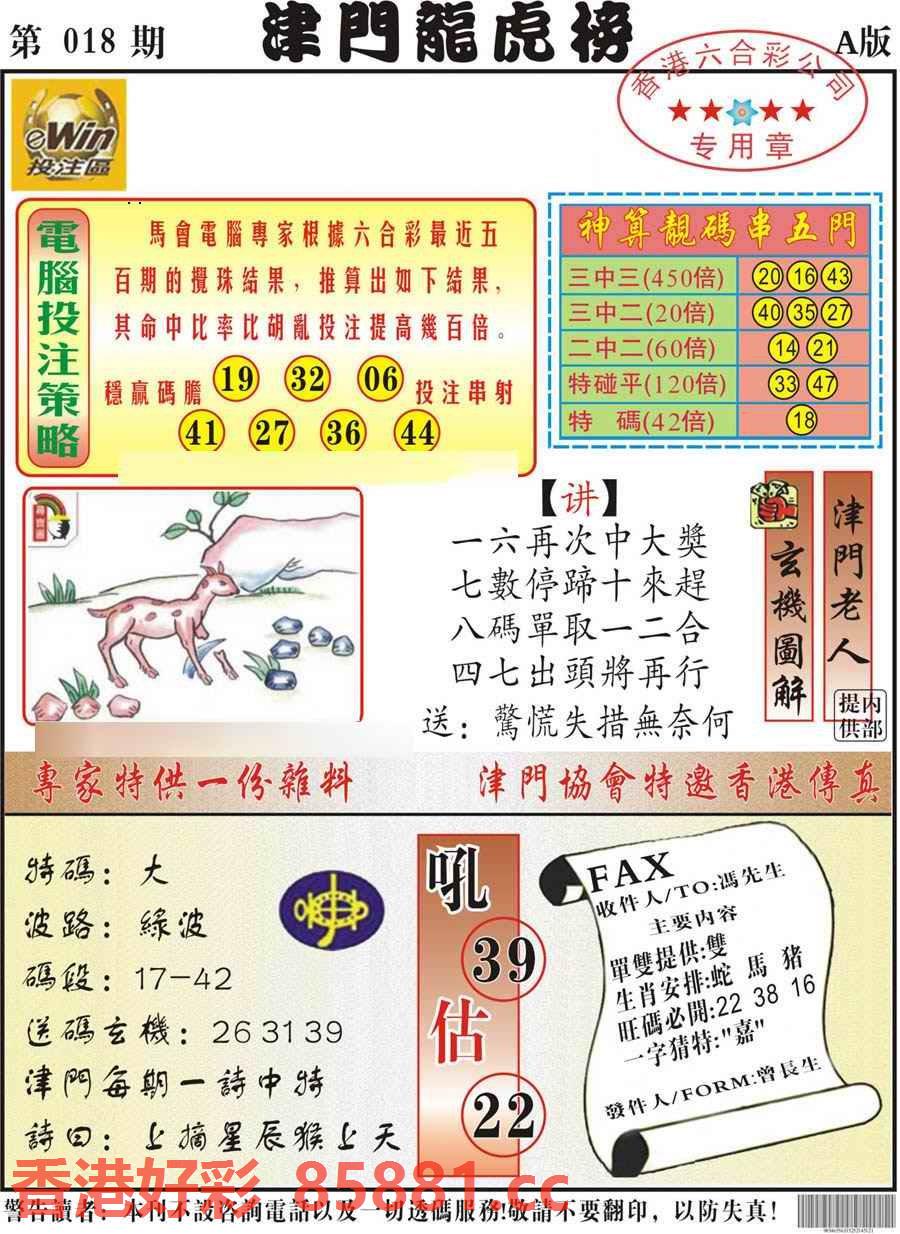 第 018 期
津門龍虎榜
A版
香港六合彩公司
专用章
eWin
投注區
電腦投注策略
馬會電腦專家根據六合彩最近五
百期的攪珠結果，推算出如下結果，
其命中比率比胡亂投注提高幾百倍。
穩贏碼膽 19 32 06 投注串射
41 27 36 44
神算靚碼串五門
三中三(450倍) 20 16 43
三中二(20倍) 40 35 27
二中二(60倍) 14 21
特碰平(120倍) 33 47
特 碼(42倍) 18
尋寶圖
【讲】
一六再次中大獎
七數停蹄十來趕
八碼單取一二合
四七出頭將再行
送：驚慌失措無奈何
玄機圖解
津門老人
内部提供
專家特供一份雜料
津門協會特邀香港傳真
特碼：大
波路：綠波
碼段：17-42
送碼玄機：26 31 39
津門每期一詩中特
詩曰：上摘星辰猴上天
吼
39
估
22
FAX
收件人/TO:馮先生
主要内容
單雙提供:雙
生肖安排:蛇 馬 豬
旺碼必開:22 38 16
一字猜特:"嘉"
發件人/FORM:曾長生
香港好彩 85881.cc
警告讀者：本刊不設咨詢電話以及一切透碼服務!敬請不要翻印，以防失真!